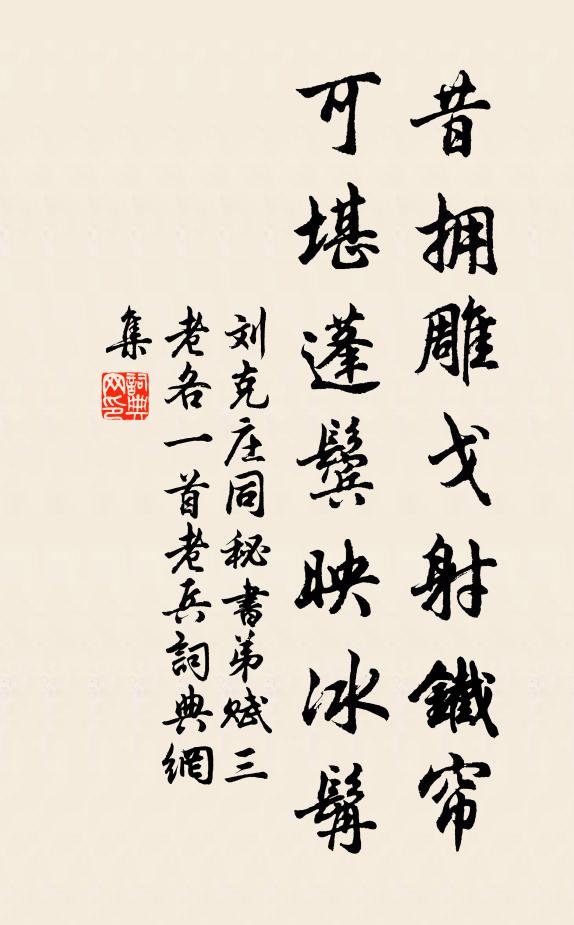 昔拥雕戈射鐵帘
可堪蓬鬓映冰髯
刘克庄同秘書弟赋三
老各一首老兵詞典網
集
詞典
网印